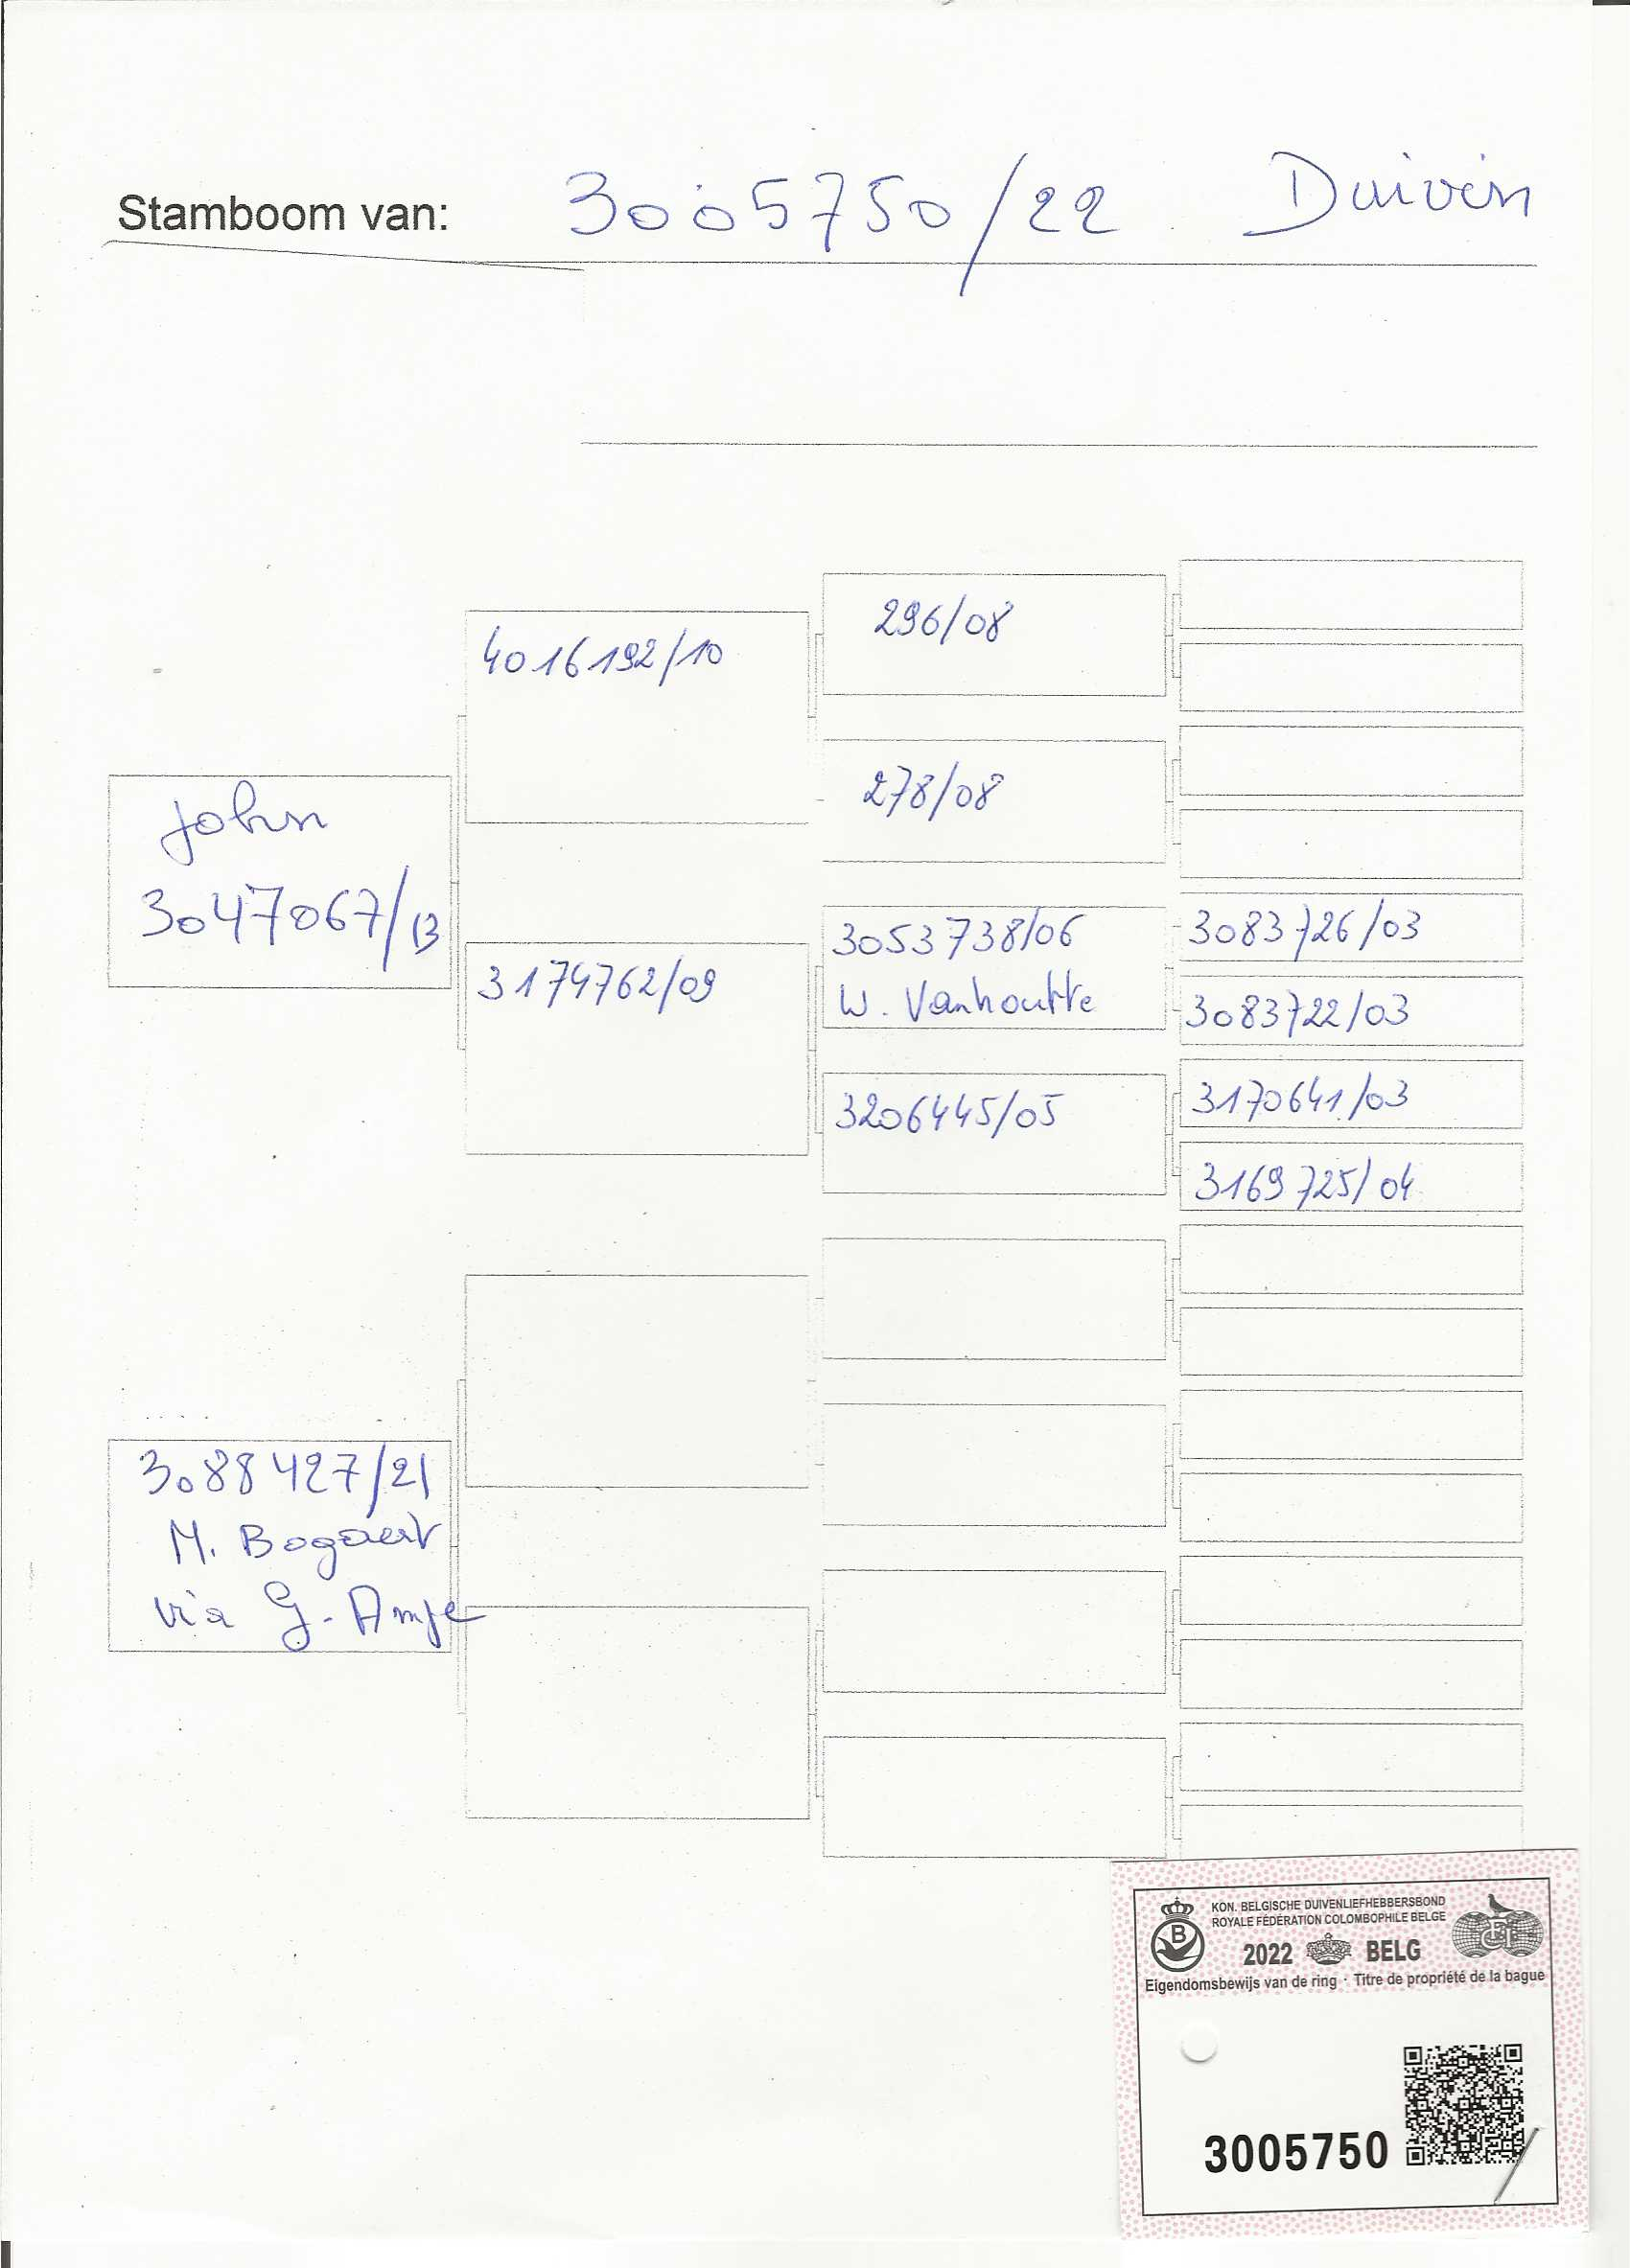 Stamboom van: 3005750/22 Duivin
296/08
4016192/10
278/08
John
3047067/13
3053738/06
W. Vanhoutte
3083726/03
3083722/03
3174762/09
3206445/05
3170641/03
3169725/04
3088427/21
M. Bogaert
via G. Ampe
KON. BELGISCHE DUIVENLIEFHEBBERSBOND
ROYALE FÉDÉRATION COLOMBOPHILE BELGE
B
FCI
2022 BELG
Eigendomsbewijs van de ring · Titre de propriété de la bague
3005750